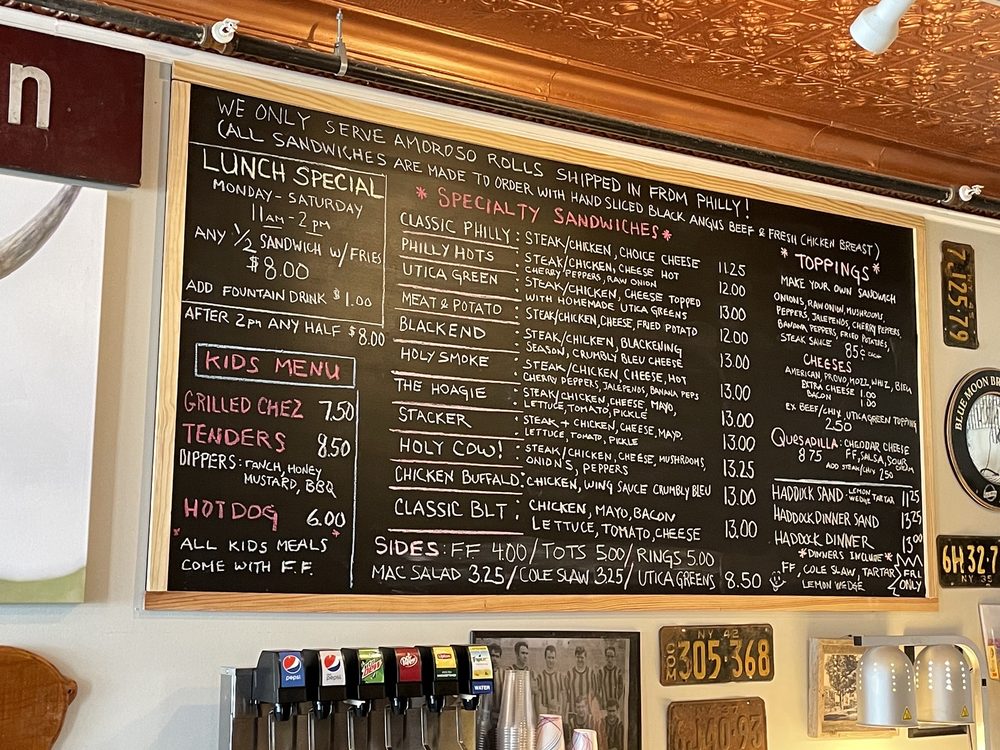 n
WE ONLY SERVE AMOROSO ROLLS SHIPPED IN FROM PHILLY!
(ALL SANDWICHES ARE MADE TO ORDER WITH HAND SLICED BLACK ANGUS BEEF & FRESH CHICKEN BREAST)
LUNCH SPECIAL
MONDAY - SATURDAY
11AM - 2 PM
ANY 1/2 SANDWICH W/FRIES
$8.00
ADD FOUNTAIN DRINK $1.00
AFTER 2PM ANY HALF $8.00
KIDS MENU
GRILLED CHEZ 7.50
TENDERS 8.50
DIPPERS: RANCH, HONEY
MUSTARD, BBQ
HOT DOG 6.00
*ALL KIDS MEALS*
COME WITH F.F.
*SPECIALTY SANDWICHES*
CLASSIC PHILLY: STEAK/CHICKEN, CHOICE CHEESE 11.25
PHILLY HOTS: STEAK/CHICKEN, CHEESE HOT
CHERRY PEPPERS, RAW ONION 12.00
UTICA GREEN: STEAK/CHICKEN, CHEESE TOPPED
WITH HOMEMADE UTICA GREENS 13.00
MEAT & POTATO: STEAK/CHICKEN, CHEESE, FRIED POTATO 12.00
BLACKEND: STEAK/CHICKEN, BLACKENING
SEASON, CRUMBLY BLEU CHEESE 13.00
HOLY SMOKE: STEAK/CHICKEN, CHEESE, HOT
CHERRY PEPPERS, JALEPENOS, BANANA PEPS 13.00
THE HOAGIE: STEAK/CHICKEN, CHEESE, MAYO,
LETTUCE, TOMATO, PICKLE 13.00
STACKER: STEAK + CHICKEN, CHEESE, MAYO,
LETTUCE, TOMATO, PICKLE 13.00
HOLY COW!: STEAK/CHICKEN, CHEESE, MUSHROOMS,
ONION'S, PEPPERS 13.25
CHICKEN BUFFALO: CHICKEN, WING SAUCE CRUMBLY BLEU 13.00
CLASSIC BLT: CHICKEN, MAYO, BACON
LETTUCE, TOMATO, CHEESE 13.00
SIDES: FF 4.00/TOTS 5.00/RINGS 5.00
MAC SALAD 3.25/COLE SLAW 3.25/UTICA GREENS 8.50
*TOPPINGS*
MAKE YOUR OWN SANDWICH
ONIONS, RAW ONION, MUSHROOMS,
PEPPERS, JALEPENOS, CHERRY PEPPERS,
BANANA PEPPERS, FRIED POTATOES,
STEAK SAUCE 85¢ EACH
CHEESES
AMERICAN, PROVO, MOZZ, WHIZ, BLEU
EXTRA CHEESE 1.00
BACON 1.00
EX BEEF/CHIX, UTICA GREEN TOPPING
2.50
QUESADILLA: CHEDDAR CHEESE
8.75 FF, SALSA, SOUR CREAM
ADD STEAK/CHIX 2.50
HADDOCK SAND LEMON WEDGE TARTAR 11.25
HADDOCK DINNER SAND 13.25
HADDOCK DINNER 13.00
*DINNERS INCLUDE*
FF, COLE SLAW, TARTAR
LEMON WEDGE
FRI. ONLY
7J25-79
BLUE MOON
6H32-7
NY 35
pepsi
pepsi
WATER
NY 42
305 368